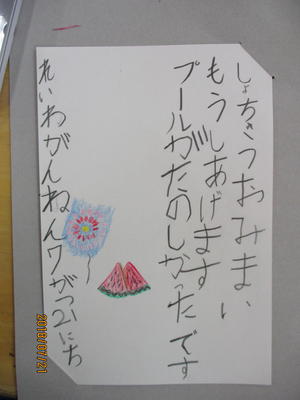 しょちゅうおみまい
もうしあげます
プールがたのしかったです
れいわがんねん7がつ21にち
2019/07/21